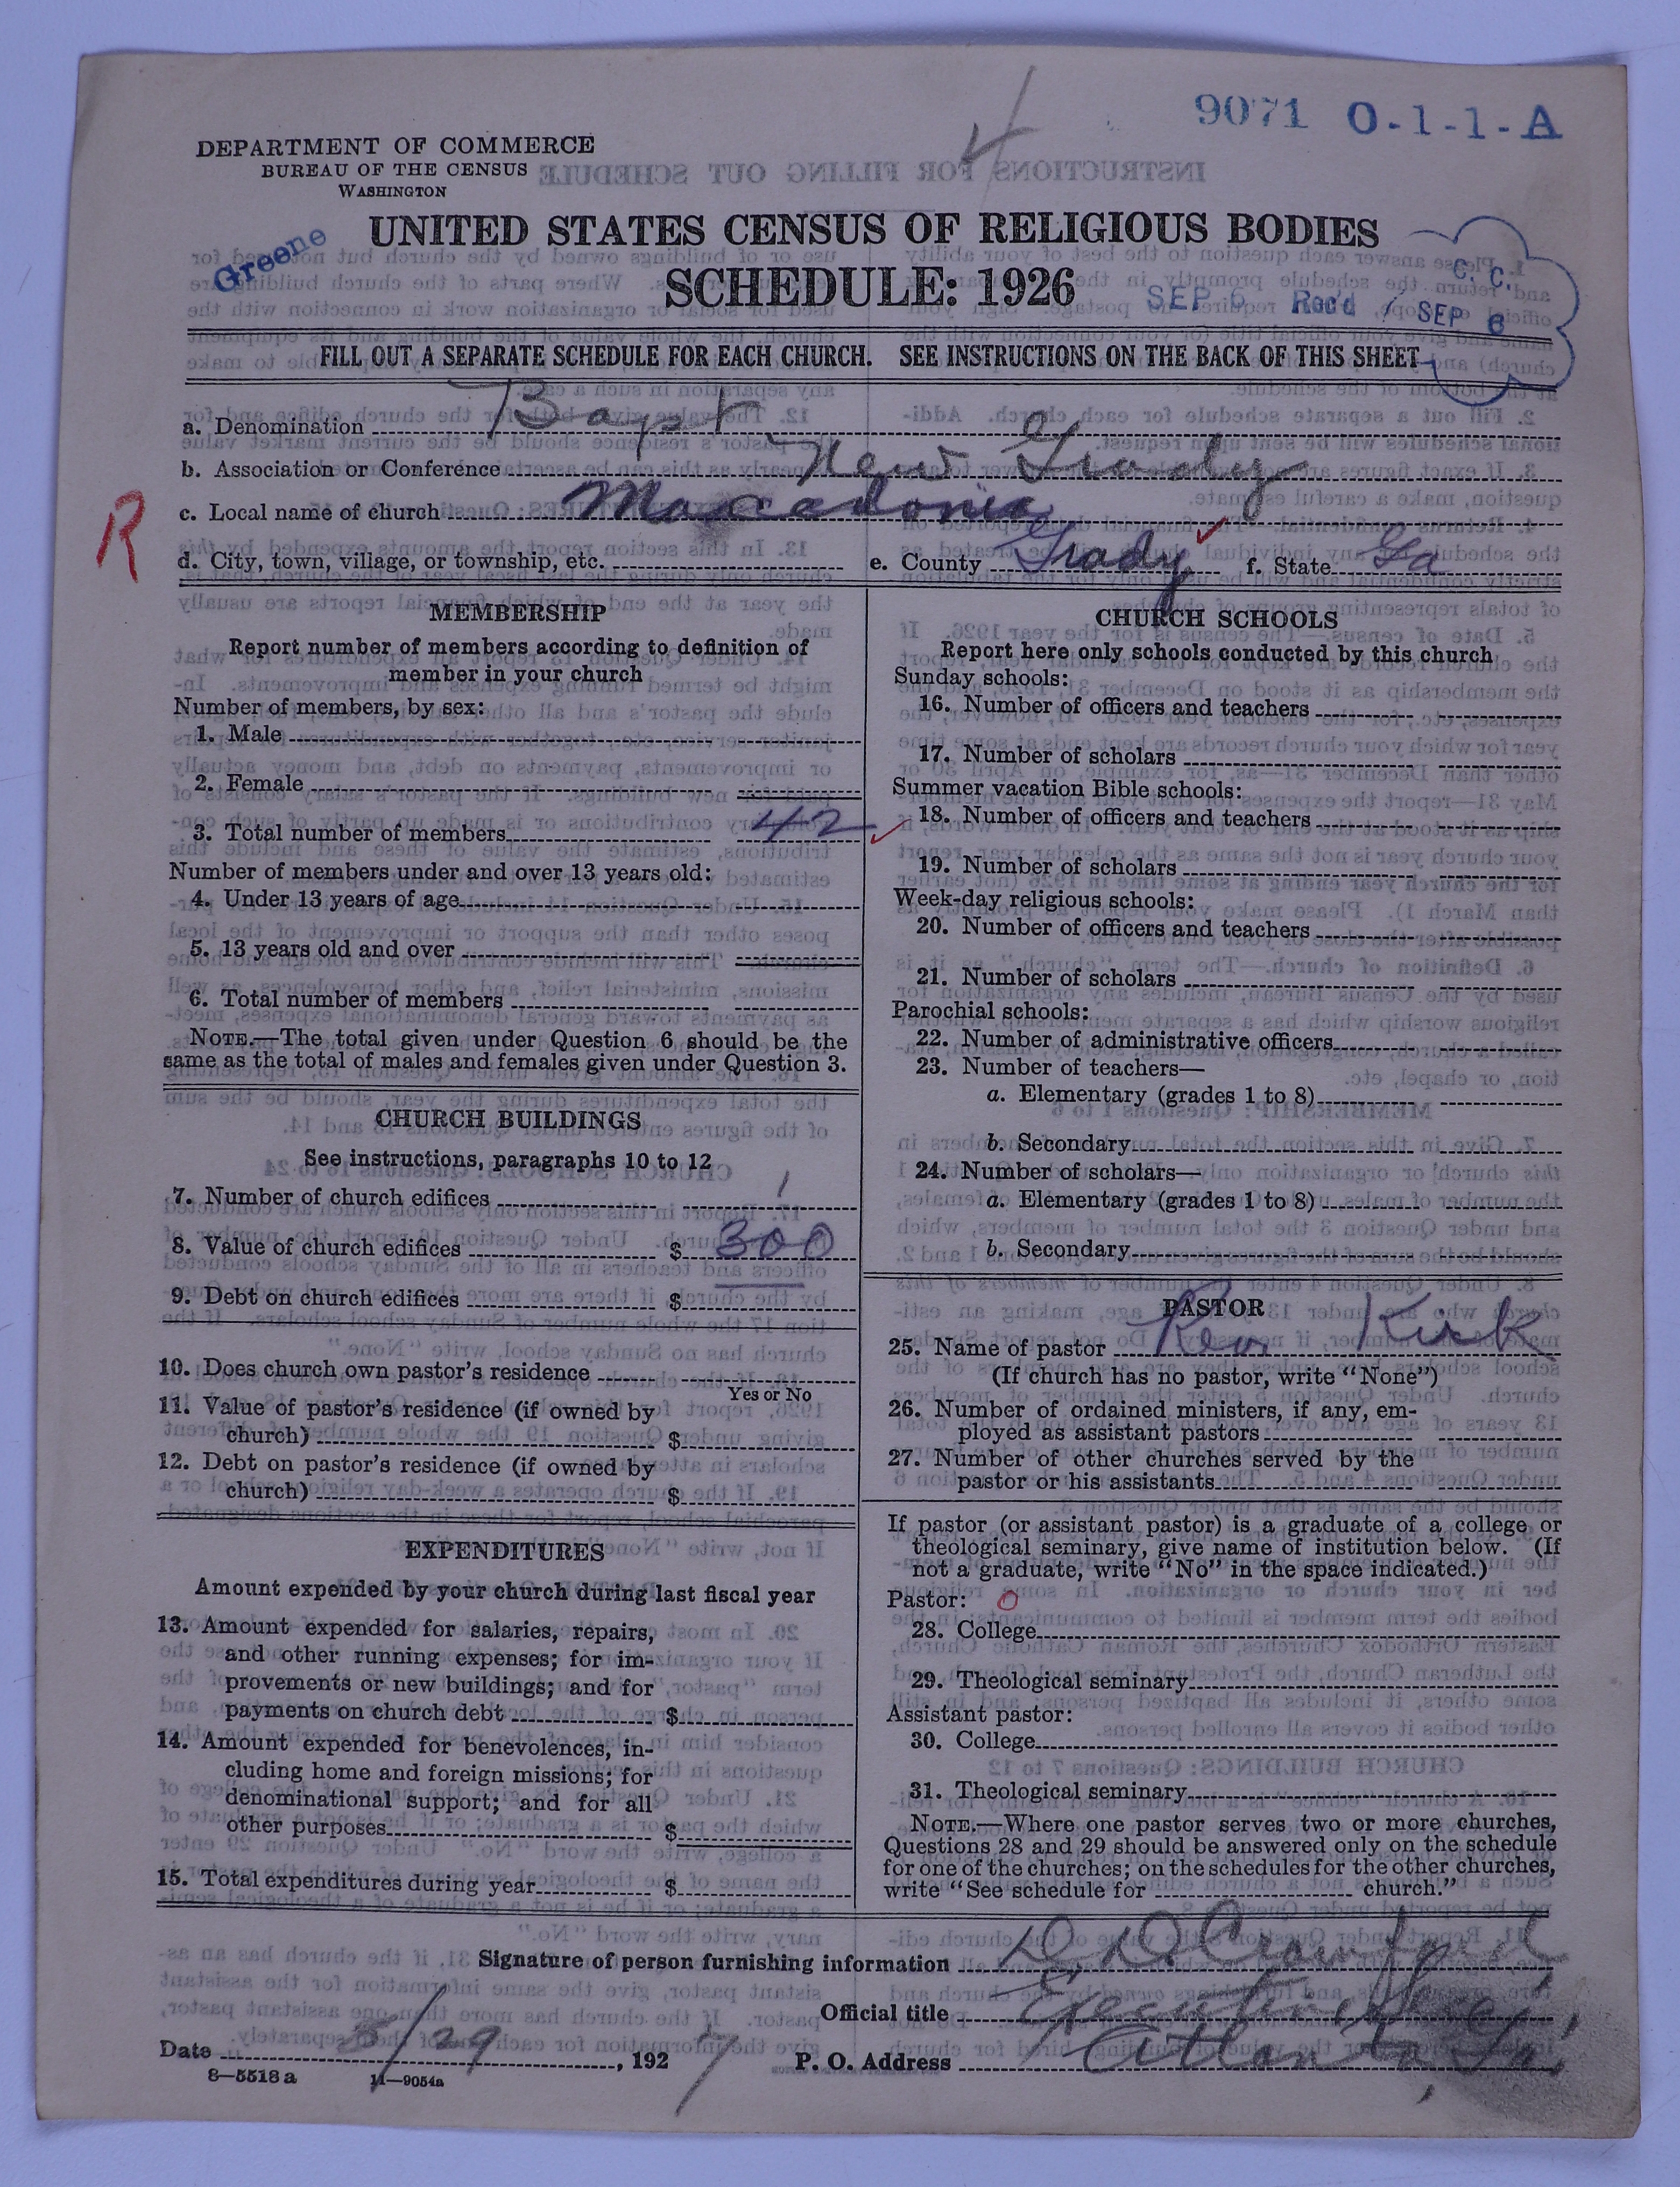 9071 O-1-1-A
DEPARTMENT OF COMMERCE
BUREAU OF THE CENSUS
WASHINGTON
Greene
UNITED STATES CENSUS OF RELIGIOUS BODIES
SCHEDULE: 1926
SEP 6 Rec'd
C. C.
SEP 6
FILL OUT A SEPARATE SCHEDULE FOR EACH CHURCH. SEE INSTRUCTIONS ON THE BACK OF THIS SHEET
a. Denomination Bapt
b. Association or Conference New Grady
c. Local name of church Maccadonia
R
d. City, town, village, or township, etc. e. County Grady f. State Ga
MEMBERSHIP
Report number of members according to definition of
member in your church
Number of members, by sex:
1. Male
2. Female
3. Total number of members 42
Number of members under and over 13 years old:
4. Under 13 years of age
5. 13 years old and over
6. Total number of members
NOTE.—The total given under Question 6 should be the
same as the total of males and females given under Question 3.
CHURCH BUILDINGS
See instructions, paragraphs 10 to 12
7. Number of church edifices 1
8. Value of church edifices $ 300
9. Debt on church edifices $
10. Does church own pastor's residence
Yes or No
11. Value of pastor's residence (if owned by
church) $
12. Debt on pastor's residence (if owned by
church) $
EXPENDITURES
Amount expended by your church during last fiscal year
13. Amount expended for salaries, repairs,
and other running expenses; for im-
provements or new buildings; and for
payments on church debt $
14. Amount expended for benevolences, in-
cluding home and foreign missions; for
denominational support; and for all
other purposes $
15. Total expenditures during year $
CHURCH SCHOOLS
Report here only schools conducted by this church
Sunday schools:
16. Number of officers and teachers
17. Number of scholars
Summer vacation Bible schools:
18. Number of officers and teachers
19. Number of scholars
Week-day religious schools:
20. Number of officers and teachers
21. Number of scholars
Parochial schools:
22. Number of administrative officers
23. Number of teachers—
a. Elementary (grades 1 to 8)
b. Secondary
24. Number of scholars—
a. Elementary (grades 1 to 8)
b. Secondary
PASTOR
25. Name of pastor Rev Kirk
(If church has no pastor, write "None")
26. Number of ordained ministers, if any, em-
ployed as assistant pastors
27. Number of other churches served by the
pastor or his assistants
If pastor (or assistant pastor) is a graduate of a college or
theological seminary, give name of institution below. (If
not a graduate, write "No" in the space indicated.)
Pastor: 0
28. College
29. Theological seminary
Assistant pastor:
30. College
31. Theological seminary
NOTE.—Where one pastor serves two or more churches,
Questions 28 and 29 should be answered only on the schedule
for one of the churches; on the schedules for the other churches,
write "See schedule for church."
Signature of person furnishing information D. D. Crawford
Official title Executive Secy,
Date 8/29, 1927 P. O. Address Atlanta, Ga,
8—5518 a 11—9054a